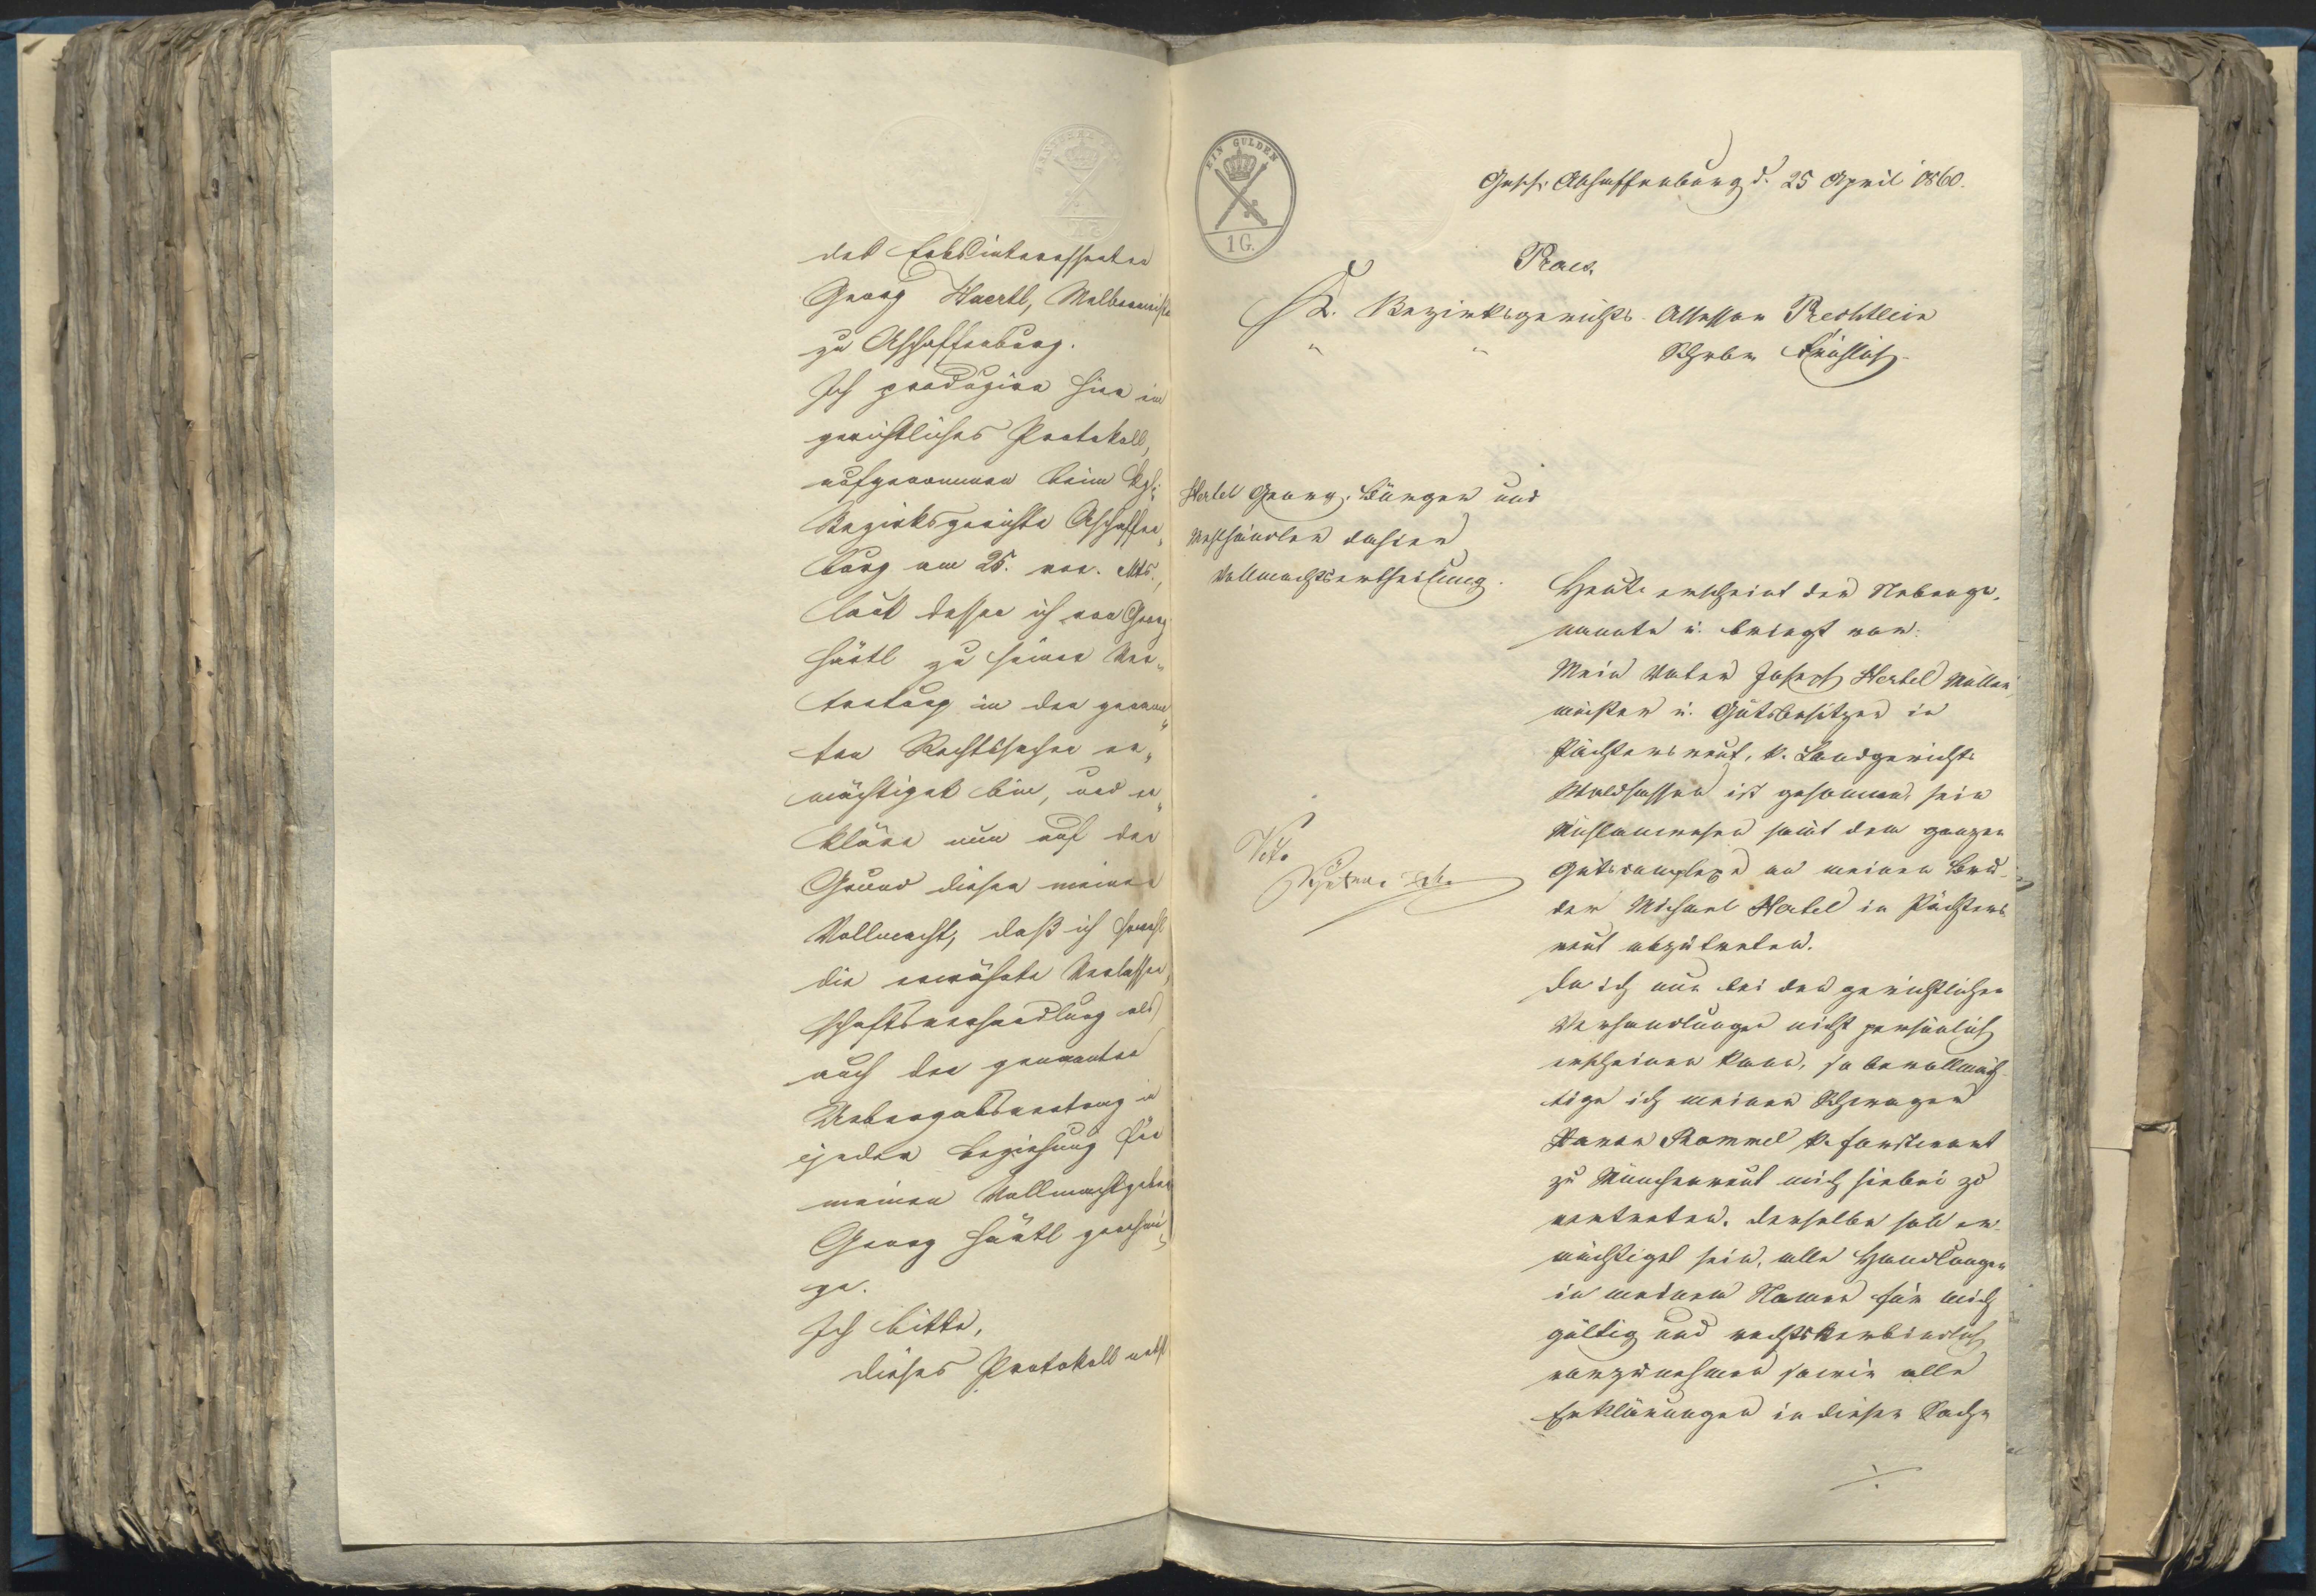 des Erbsinteressenten
Georg Haertl, Melbermeister
zu Aschaffenburg.
Ich produzire hier ein
gerichtliches Protokoll,
aufgenommen beim kgl.
Bezirksgerichte Aschaffen„
burg am 25. vor. Mts.,
laut dessen ich von Georg
Härtl zu seiner Ver„
tretung in der genann„
ten Rechtssache er„
mächtiget bin, und er„
kläre nun auf den
Grund dieser meiner
Vollmacht, daß ich sowohl
die erwähnte Verlassen„
schaftsverhandlung als
auch den genannten
Uebergabsvertrag in
jeder Beziehung für
meinen Vollmachtgeber
Georg Härtl genehmi„
ge.
Ich bitte,
dieses Protokoll nebst
EIN GULDEN
1 G.
Gesch. Aschaffenburg d. 25 April 1860.
Praes.
K. Bezirksgerichts Assessor Rechtlein
" " Schrbr
Hertel Georg, Bürger und
Mehlhändler dahier
Vollmachtsertheilung.
Heute erscheint der Nebenge„
nannte u. bringt vor:
Mein Vater Joseph Hertel Müller„
meister u. Gutsbesitzer in
Pächtersreut, k. Landgerichts
Waldsassen ist gesonnen, sein
Mühlanwesen samt dem ganzen
Gutscomplexe an meinen Bru„
der Michael Hertel in Pächters„
reut abzutreten.
Da ich nun bei den gerichtlichen
Verhandlungen nicht persönlich
erscheinen kann, so bevollmäch„
tige ich meinen Schwager
Rommel k. Forstwart
zu Münchenreut mich hiebei zu
vertreten. Derselbe soll er„
mächtiget sein, alle Handlungen
in meinem Namen für mich
gültig und rechtsverbindlich
vorzunehmen sowie alle
Erklärungen in dieser Sache